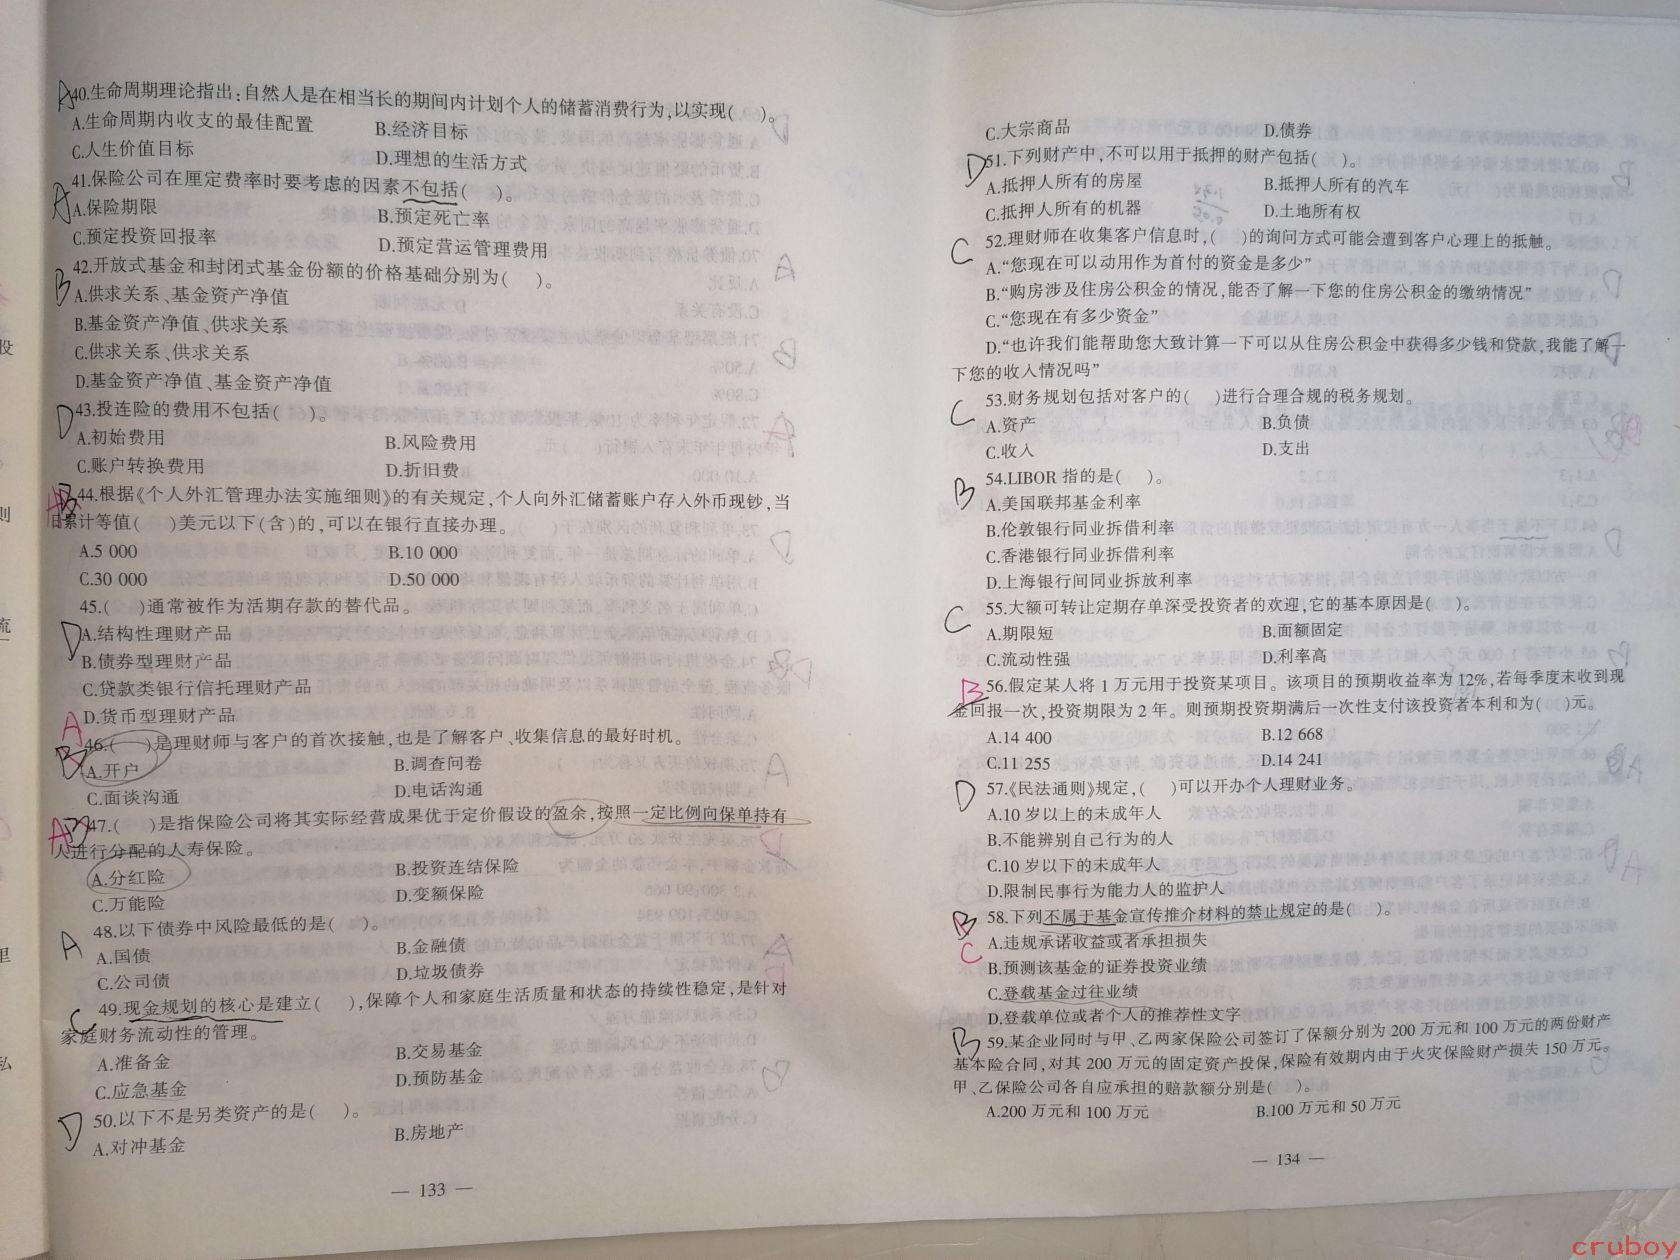 A 40.生命周期理论指出:自然人是在相当长的期间内计划个人的储蓄消费行为,以实现(　)。
A.生命周期内收支的最佳配置　B.经济目标
C.人生价值目标　D.理想的生活方式
A 41.保险公司在厘定费率时要考虑的因素不包括(　)。
A.保险期限　B.预定死亡率
C.预定投资回报率　D.预定营运管理费用
B 42.开放式基金和封闭式基金份额的价格基础分别为(　)。
A.供求关系、基金资产净值
B.基金资产净值、供求关系
C.供求关系、供求关系
D.基金资产净值、基金资产净值
D 43.投连险的费用不包括(　)。
A.初始费用　B.风险费用
C.账户转换费用　D.折旧费
A B 44.根据《个人外汇管理办法实施细则》的有关规定,个人向外汇储蓄账户存入外币现钞,当
日累计等值(　)美元以下(含)的,可以在银行直接办理。
A.5 000　B.10 000
C.30 000　D.50 000
45.(　)通常被作为活期存款的替代品。
D A.结构性理财产品
B.债券型理财产品
C.贷款类银行信托理财产品
D.货币型理财产品
A B 46.(　)是理财师与客户的首次接触,也是了解客户、收集信息的最好时机。
A.开户　B.调查问卷
C.面谈沟通　D.电话沟通
A D 47.(　)是指保险公司将其实际经营成果优于定价假设的盈余,按照一定比例向保单持有
人进行分配的人寿保险。
A.分红险　B.投资连结保险
C.万能险　D.变额保险
A 48.以下债券中风险最低的是(　)。
A.国债　B.金融债
C.公司债　D.垃圾债券
C 49.现金规划的核心是建立(　),保障个人和家庭生活质量和状态的持续性稳定,是针对
家庭财务流动性的管理。
A.准备金　B.交易基金
C.应急基金　D.预防基金
D 50.以下不是另类资产的是(　)。
A.对冲基金　B.房地产
— 133 —
C.大宗商品　D.债券
D 51.下列财产中,不可以用于抵押的财产包括(　)。
A.抵押人所有的房屋　B.抵押人所有的汽车
C.抵押人所有的机器　D.土地所有权
C 52.理财师在收集客户信息时,(　)的询问方式可能会遭到客户心理上的抵触。
A.“您现在可以动用作为首付的资金是多少”
B.“购房涉及住房公积金的情况,能否了解一下您的住房公积金的缴纳情况”
C.“您现在有多少资金”
D.“也许我们能帮助您大致计算一下可以从住房公积金中获得多少钱和贷款,我能了解一
下您的收入情况吗”
C 53.财务规划包括对客户的(　)进行合理合规的税务规划。
A.资产　B.负债
C.收入　D.支出
B 54.LIBOR 指的是(　)。
A.美国联邦基金利率
B.伦敦银行同业拆借利率
C.香港银行同业拆借利率
D.上海银行间同业拆放利率
C 55.大额可转让定期存单深受投资者的欢迎,它的基本原因是(　)。
A.期限短　B.面额固定
C.流动性强　D.利率高
B 56.假定某人将 1 万元用于投资某项目。该项目的预期收益率为 12%,若每季度末收到现
金回报一次,投资期限为 2 年。则预期投资期满后一次性支付该投资者本利和为(　)元。
A.14 400　B.12 668
C.11 255　D.14 241
D 57.《民法通则》规定,(　)可以开办个人理财业务。
A.10 岁以上的未成年人
B.不能辨别自己行为的人
C.10 岁以下的未成年人
D.限制民事行为能力人的监护人
B C 58.下列不属于基金宣传推介材料的禁止规定的是(　)。
A.违规承诺收益或者承担损失
B.预测该基金的证券投资业绩
C.登载基金过往业绩
D.登载单位或者个人的推荐性文字
B 59.某企业同时与甲、乙两家保险公司签订了保额分别为 200 万元和 100 万元的两份财产
基本险合同,对其 200 万元的固定资产投保,保险有效期内由于火灾保险财产损失 150 万元。
甲、乙保险公司各自应承担的赔款额分别是(　)。
A.200 万元和 100 万元　B.100 万元和 50 万元
— 134 —
cruboy